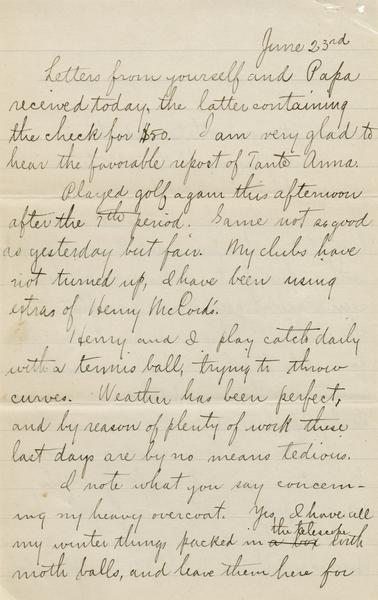 June 23rd
Letters from yourself and Papa
received today, the latter containing
the check for $50. I am very glad to
hear the favorable report of Tante Anna.
Played golf again this afternoon
after the 7th period. Game not so good
as yesterday but fair. My clubs have
not turned up, I have been using
extras of Henry McCord's.
Henry and I play catch daily
with a tennis ball, trying to throw
curves. Weather has been perfect,
and by reason of plenty of work these
last days are by no means tedious.
I note what you say concern-
ing my heavy overcoat. Yes, I have all
the telescope
my winter things packed in a box with
moth balls, and leave them here for